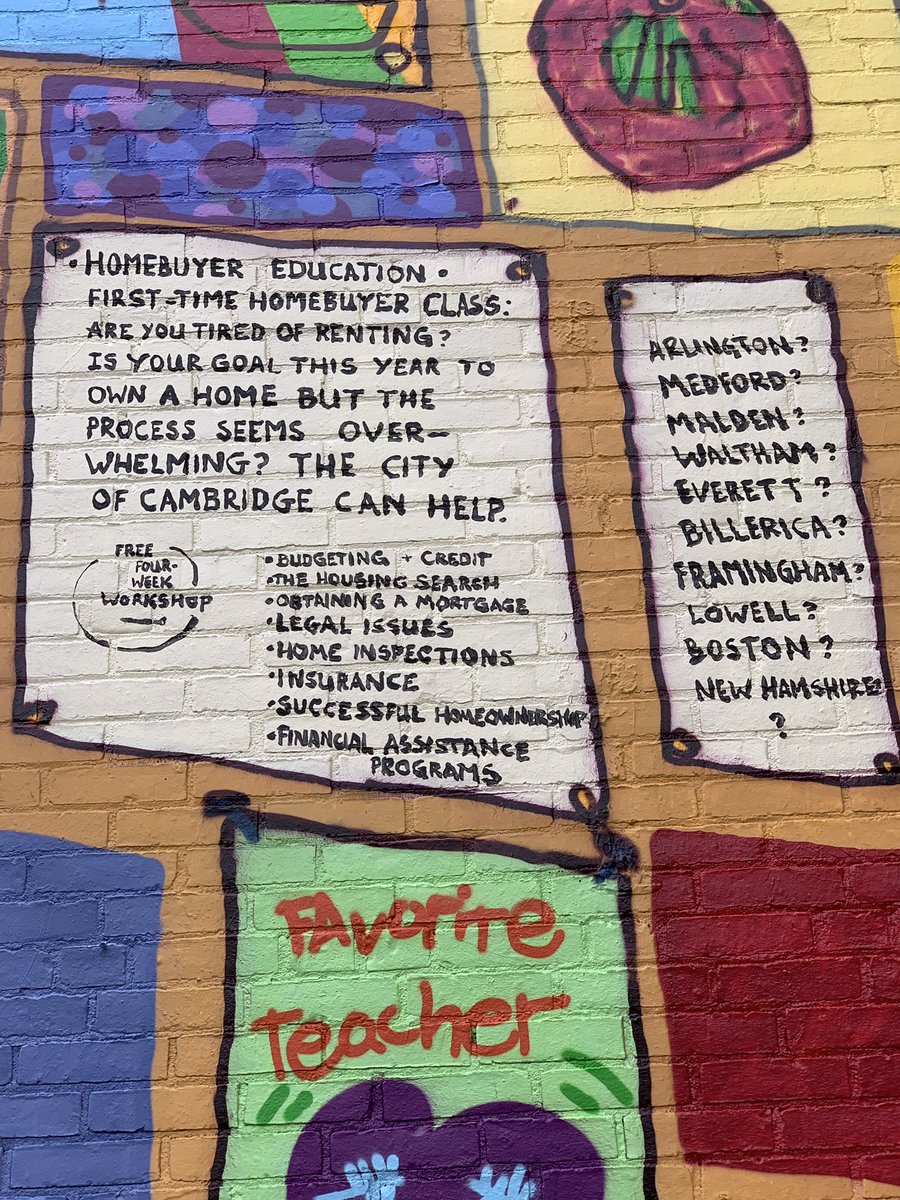 • HOMEBUYER EDUCATION •
FIRST-TIME HOMEBUYER CLASS:
ARE YOU TIRED OF RENTING?
IS YOUR GOAL THIS YEAR TO
OWN A HOME BUT THE
PROCESS SEEMS OVER-
WHELMING? THE CITY
OF CAMBRIDGE CAN HELP.
FREE
FOUR-
WEEK
WORKSHOP
• BUDGETING + CREDIT
• THE HOUSING SEARCH
• OBTAINING A MORTGAGE
• LEGAL ISSUES
• HOME INSPECTIONS
• INSURANCE
• SUCCESSFUL HOMEOWNERSHIP
• FINANCIAL ASSISTANCE
PROGRAMS
ARLINGTON?
MEDFORD?
MALDEN?
WALTHAM?
EVERETT?
BILLERICA?
FRAMINGHAM?
LOWELL?
BOSTON?
NEW HAMSHIRE
?
FAvoriTe
Teacher